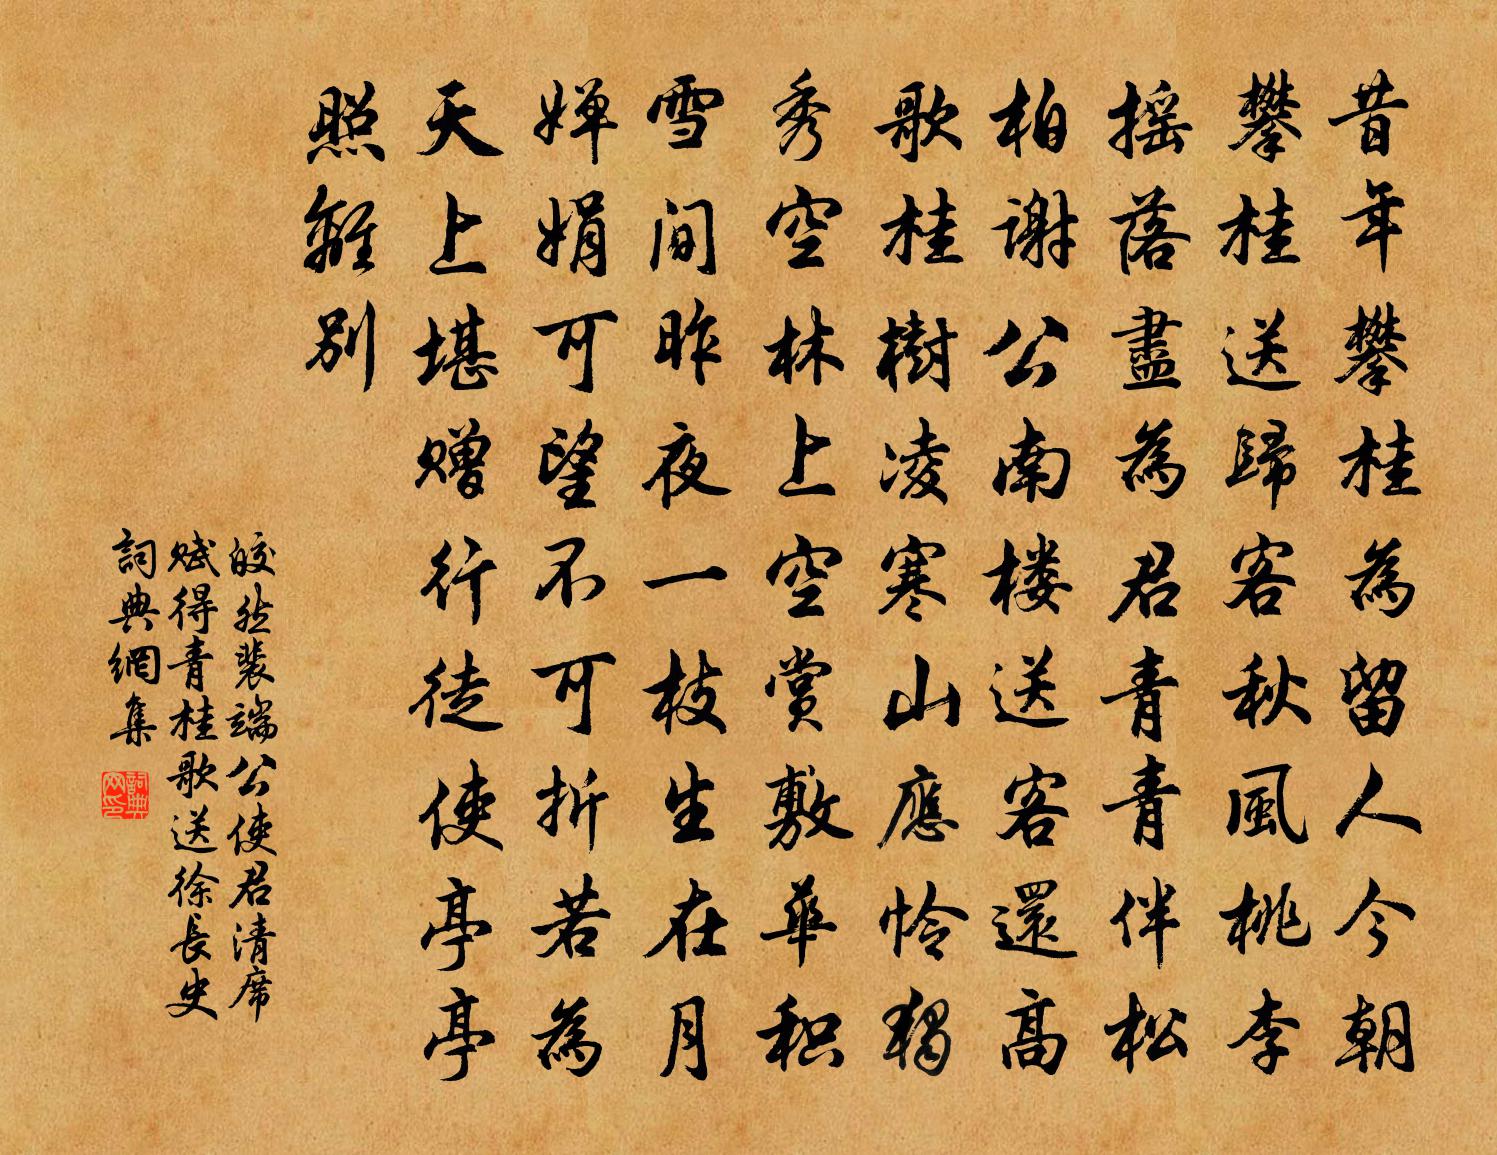 昔年攀桂為留人今朝
攀桂送歸客秋風桃李
搖落盡為君青青伴松
柏謝公南楼送客還高
歌桂樹凌寒山應怜獨
秀空林上空賞敷華积
雪间昨夜一枝生在月
嬋娟可望不可折若為
天上堪赠行徒使亭亭
照離别
皎然裴端公使君清席
赋得青桂歌送徐長史
詞典網集
詞典网印